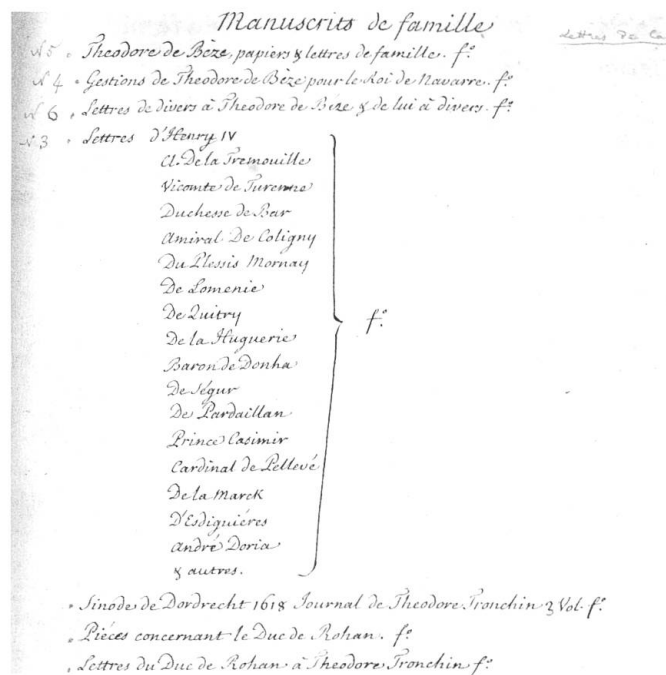 Manuscrits de famille
Lettres de la
N 5 . Theodore de Bèze, papiers & lettres de famille. f.º
N 4 . Gestions de Theodore de Bèze pour le Roi de Navarre. f.º
N 6 . Lettres de divers à Theodore de Bèze & de lui à divers. f.º
N. 3 . Lettres d'Henry IV
Cl. De la Tremouille
Vicomte de Turenne
Duchesse de Bar
Amiral De Coligny
Du Plessis Mornay
De Lomenie
De Quitry
De la Huguerie
f.º
Baron de Donha
De Ségur
De Pardaillan
Prince Casimir
Cardinal de Pellevé
De la Marck
D'Esdiguiéres
André Doria
& autres.
. Sinode de Dordrecht 1618 Journal de Theodore Tronchin 3 Vol. f.º
. Piéces concernant le Duc de Rohan. f.º
. Lettres du Duc de Rohan à Theodore Tronchin f.º